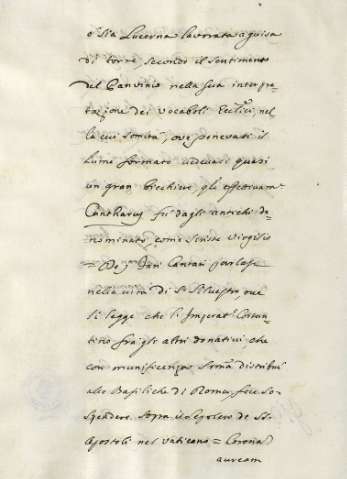 o sia Lucerna lavorata a guisa
di torre secondo il sentimento
del Panvinio nella sua interpe-
tazione dei vocaboli Eccl.ci, nel
la cui somità, ove ponevasi il
lume formato vedevasi quasi
un gran bicchiere, che
Cantharus fù dagli antichi de-
nominato, come scrive Virgilio
= De Cantari parlasi
nella vita di S. Silvestro, ove
si legge che l' Imperat. Costan-
tino fra gli altri donativi, che
con munificenza distribuì
alle Basiliche di Roma, fece so-
spendere sopra il Sepolcro de SS.
Apostoli nel Vaticano = Corona
auream